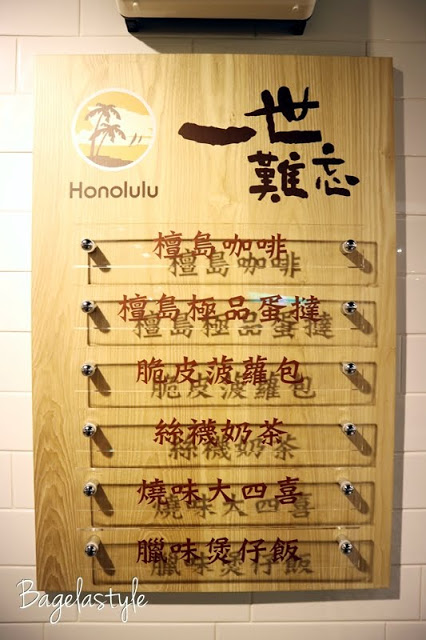 一世
難忘
Honolulu
檀島咖啡
檀島極品蛋撻
脆皮菠蘿包
絲襪奶茶
燒味大四喜
臘味煲仔飯
Bagelastyle